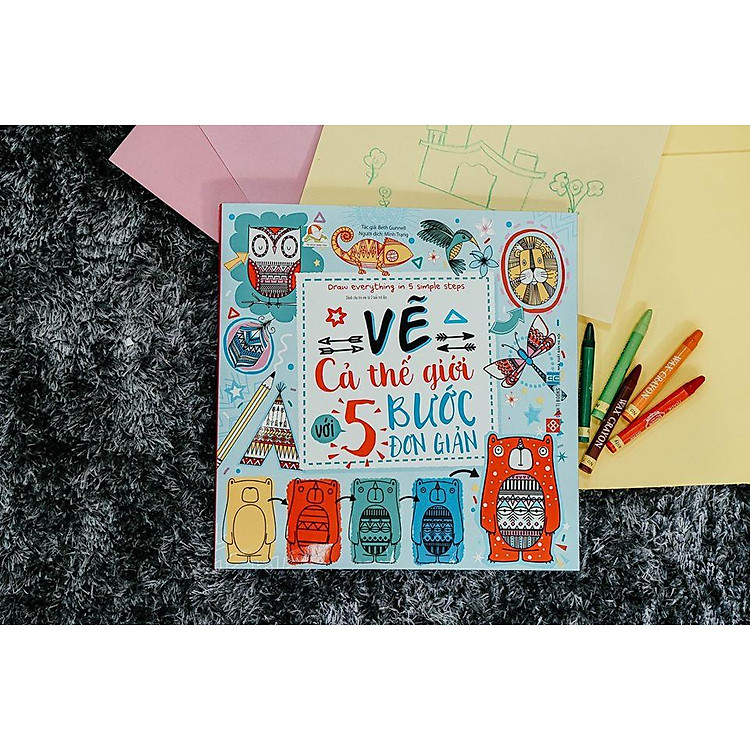 Tác giả: Beth Gunnell
Người dịch: Minh Trang
Draw everything in 5 simple steps
Dành cho trẻ em từ 3 tuổi trở lên
VẼ
Cả thế giới
với 5 BƯỚC
ĐƠN GIẢN
WAX CRAYON
WAX CRAYON